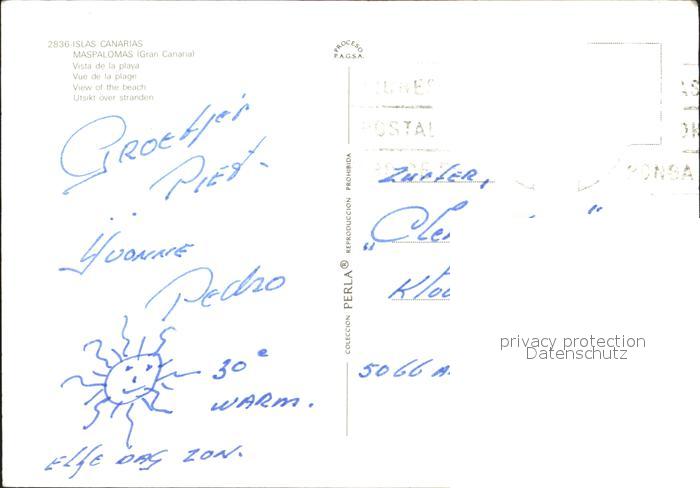 2836 ISLAS CANARIAS
MASPALOMAS (Gran Canaria)
Vista de la playa
Vue de la plage
View of the beach
Utsikt över stranden
PROCESO
P.A.G.S.A.
Groetjes
Piet.
Yvonne
Pedro
30°
WARM.
Elke dag zon.
COLECCION PERLA® REPRODUCCION PROHIBIDA
POSTAL
5066 A.
privacy protection
Datenschutz